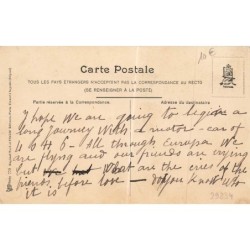 10€
Carte Postale
TOUS LES PAYS ÉTRANGERS N'ACCEPTENT PAS LA CORRESPONDANCE AU RECTO
(SE RENSEIGNER A LA POSTE)
Partie réservée à la Correspondance. Adresse du destinataire
I hope we are going to begin a
long journey with a motor-car of
4 0 4 6 - All through Europa We
are flying and our friends are crying
but What are the cries of the
friends before love - You know what
it is